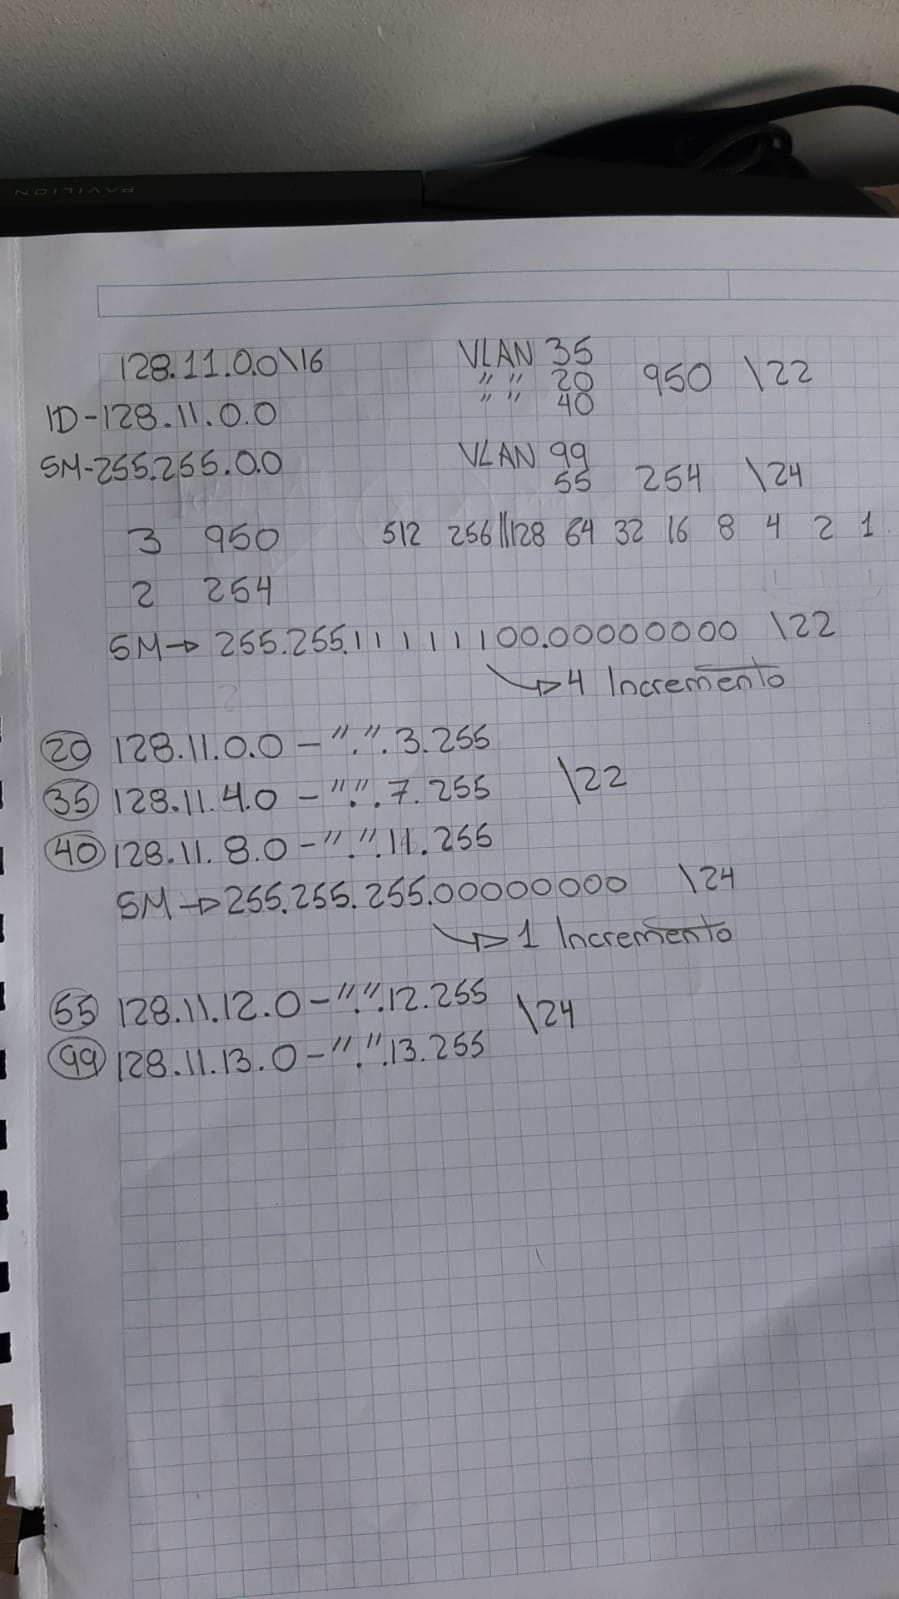 PAVILION
128.11.0.0\16
ID-128.11.0.0
SM-255.255.0.0
VLAN 35
" " 20 950 \22
" " 40
VLAN 99
55 254 \24
3 950
2 254
512 256||128 64 32 16 8 4 2 1
SM→ 255.255.11111100.00000000 \22
→4 Incremento
20 128.11.0.0 - ".".3.255
35 128.11.4.0 - ".".7.255 \22
40 128.11.8.0 - ".".11.255
SM→255.255.255.00000000 \24
→1 Incremento
55 128.11.12.0 - ".".12.255 \24
99 128.11.13.0 - ".".13.255